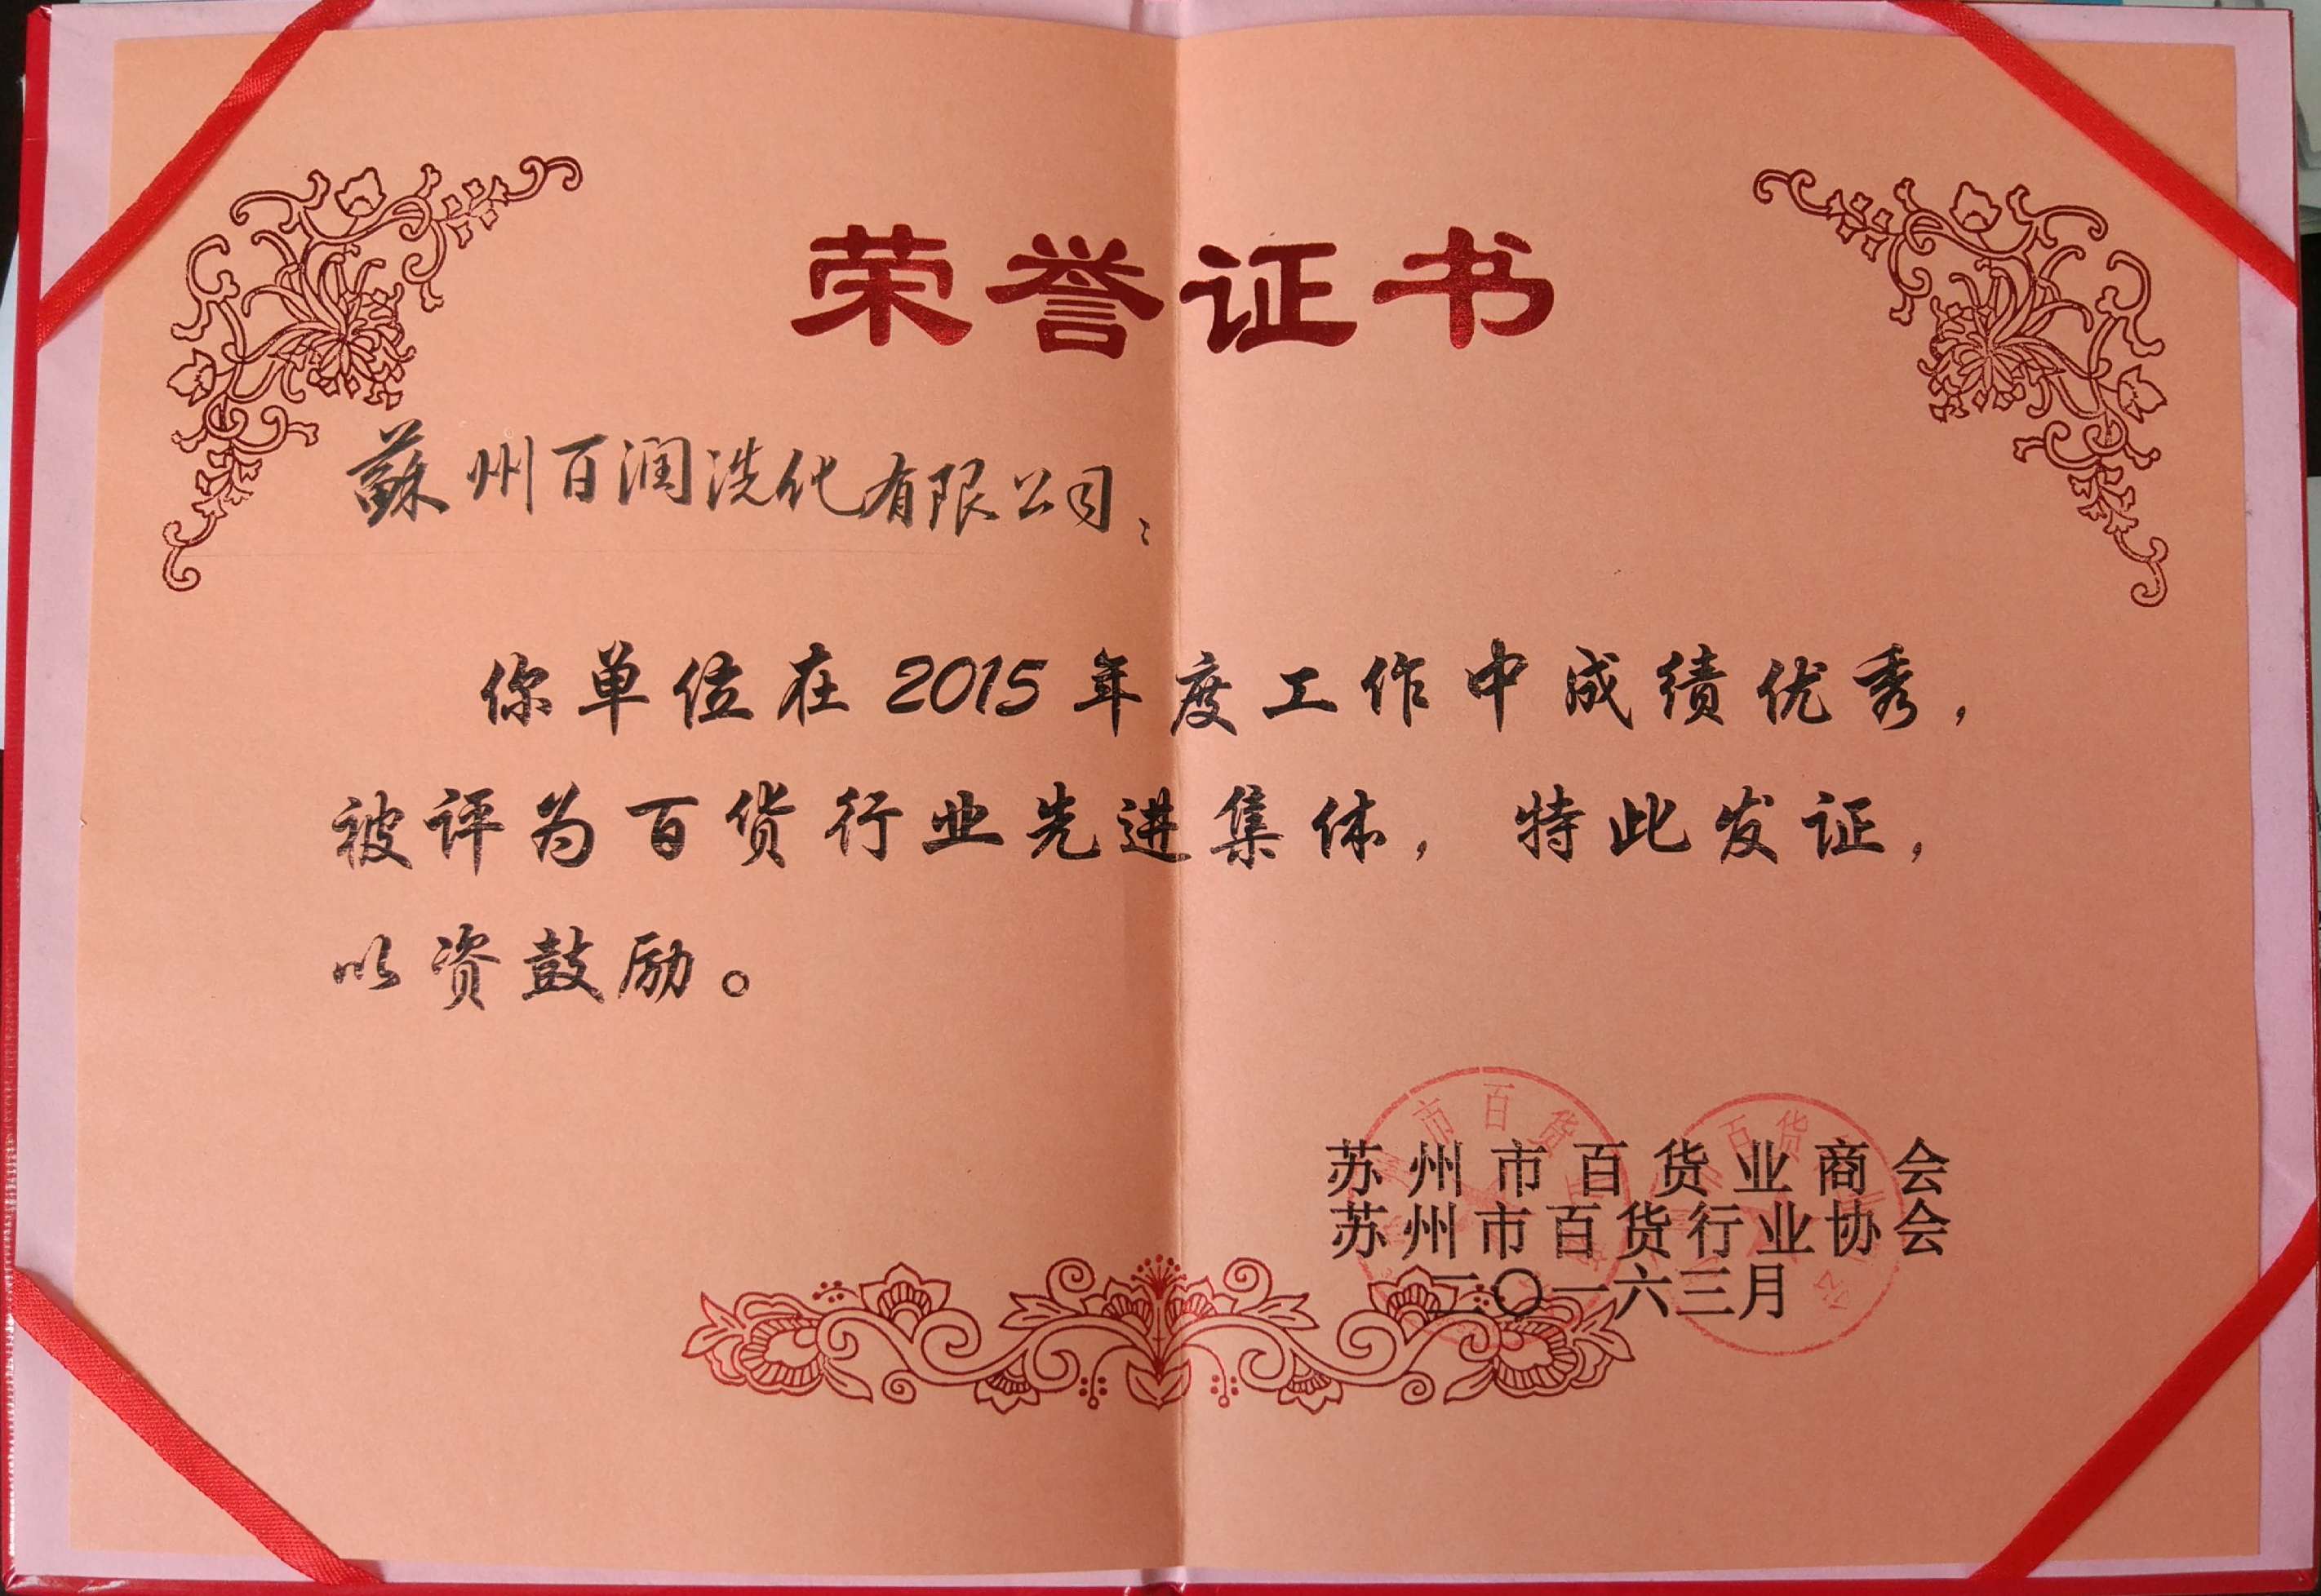 荣誉证书
蘇州百润洗化有限公司:
你单位在2015年度工作中成绩优秀,
被评为百货行业先进集体,特此发证,
以资鼓励。
苏州市百货业商会
苏州市百货行业协会
二〇一六三月